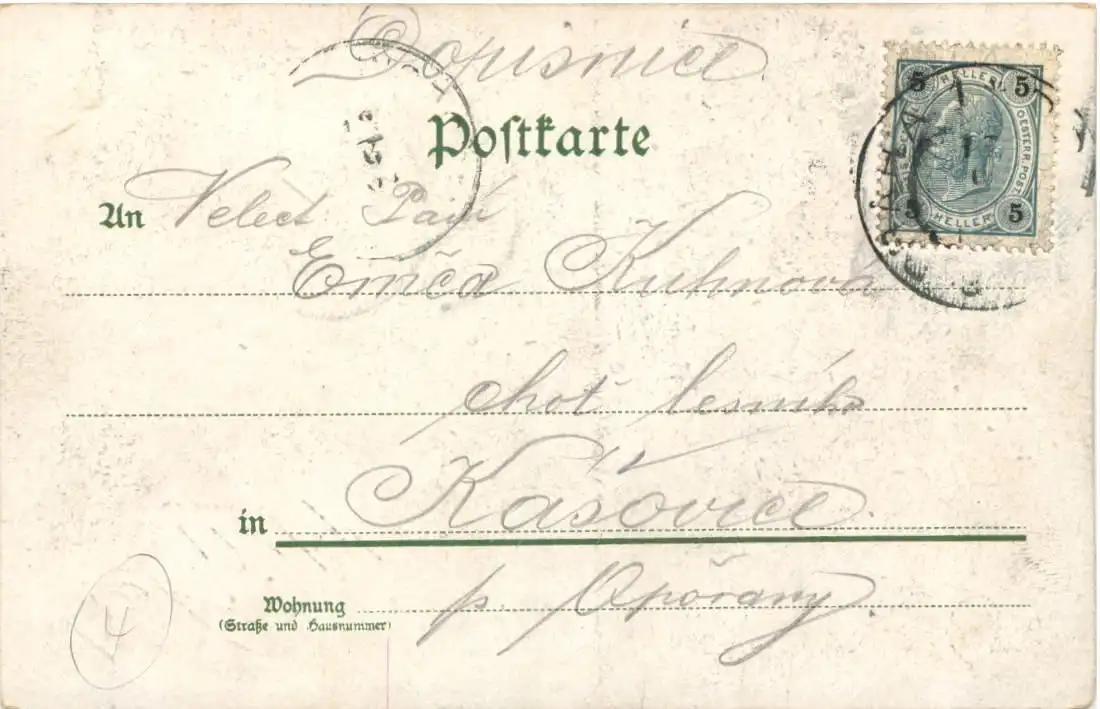 Dopisnice
Postkarte
5 HELLER 5
OESTERR. POST.
5 HELLER 5
An Velect. Paní
Emča Kuhnová
choť lesníka
in Kášovice
Wohnung p. Opořany
(Straße und Hausnummer)
4